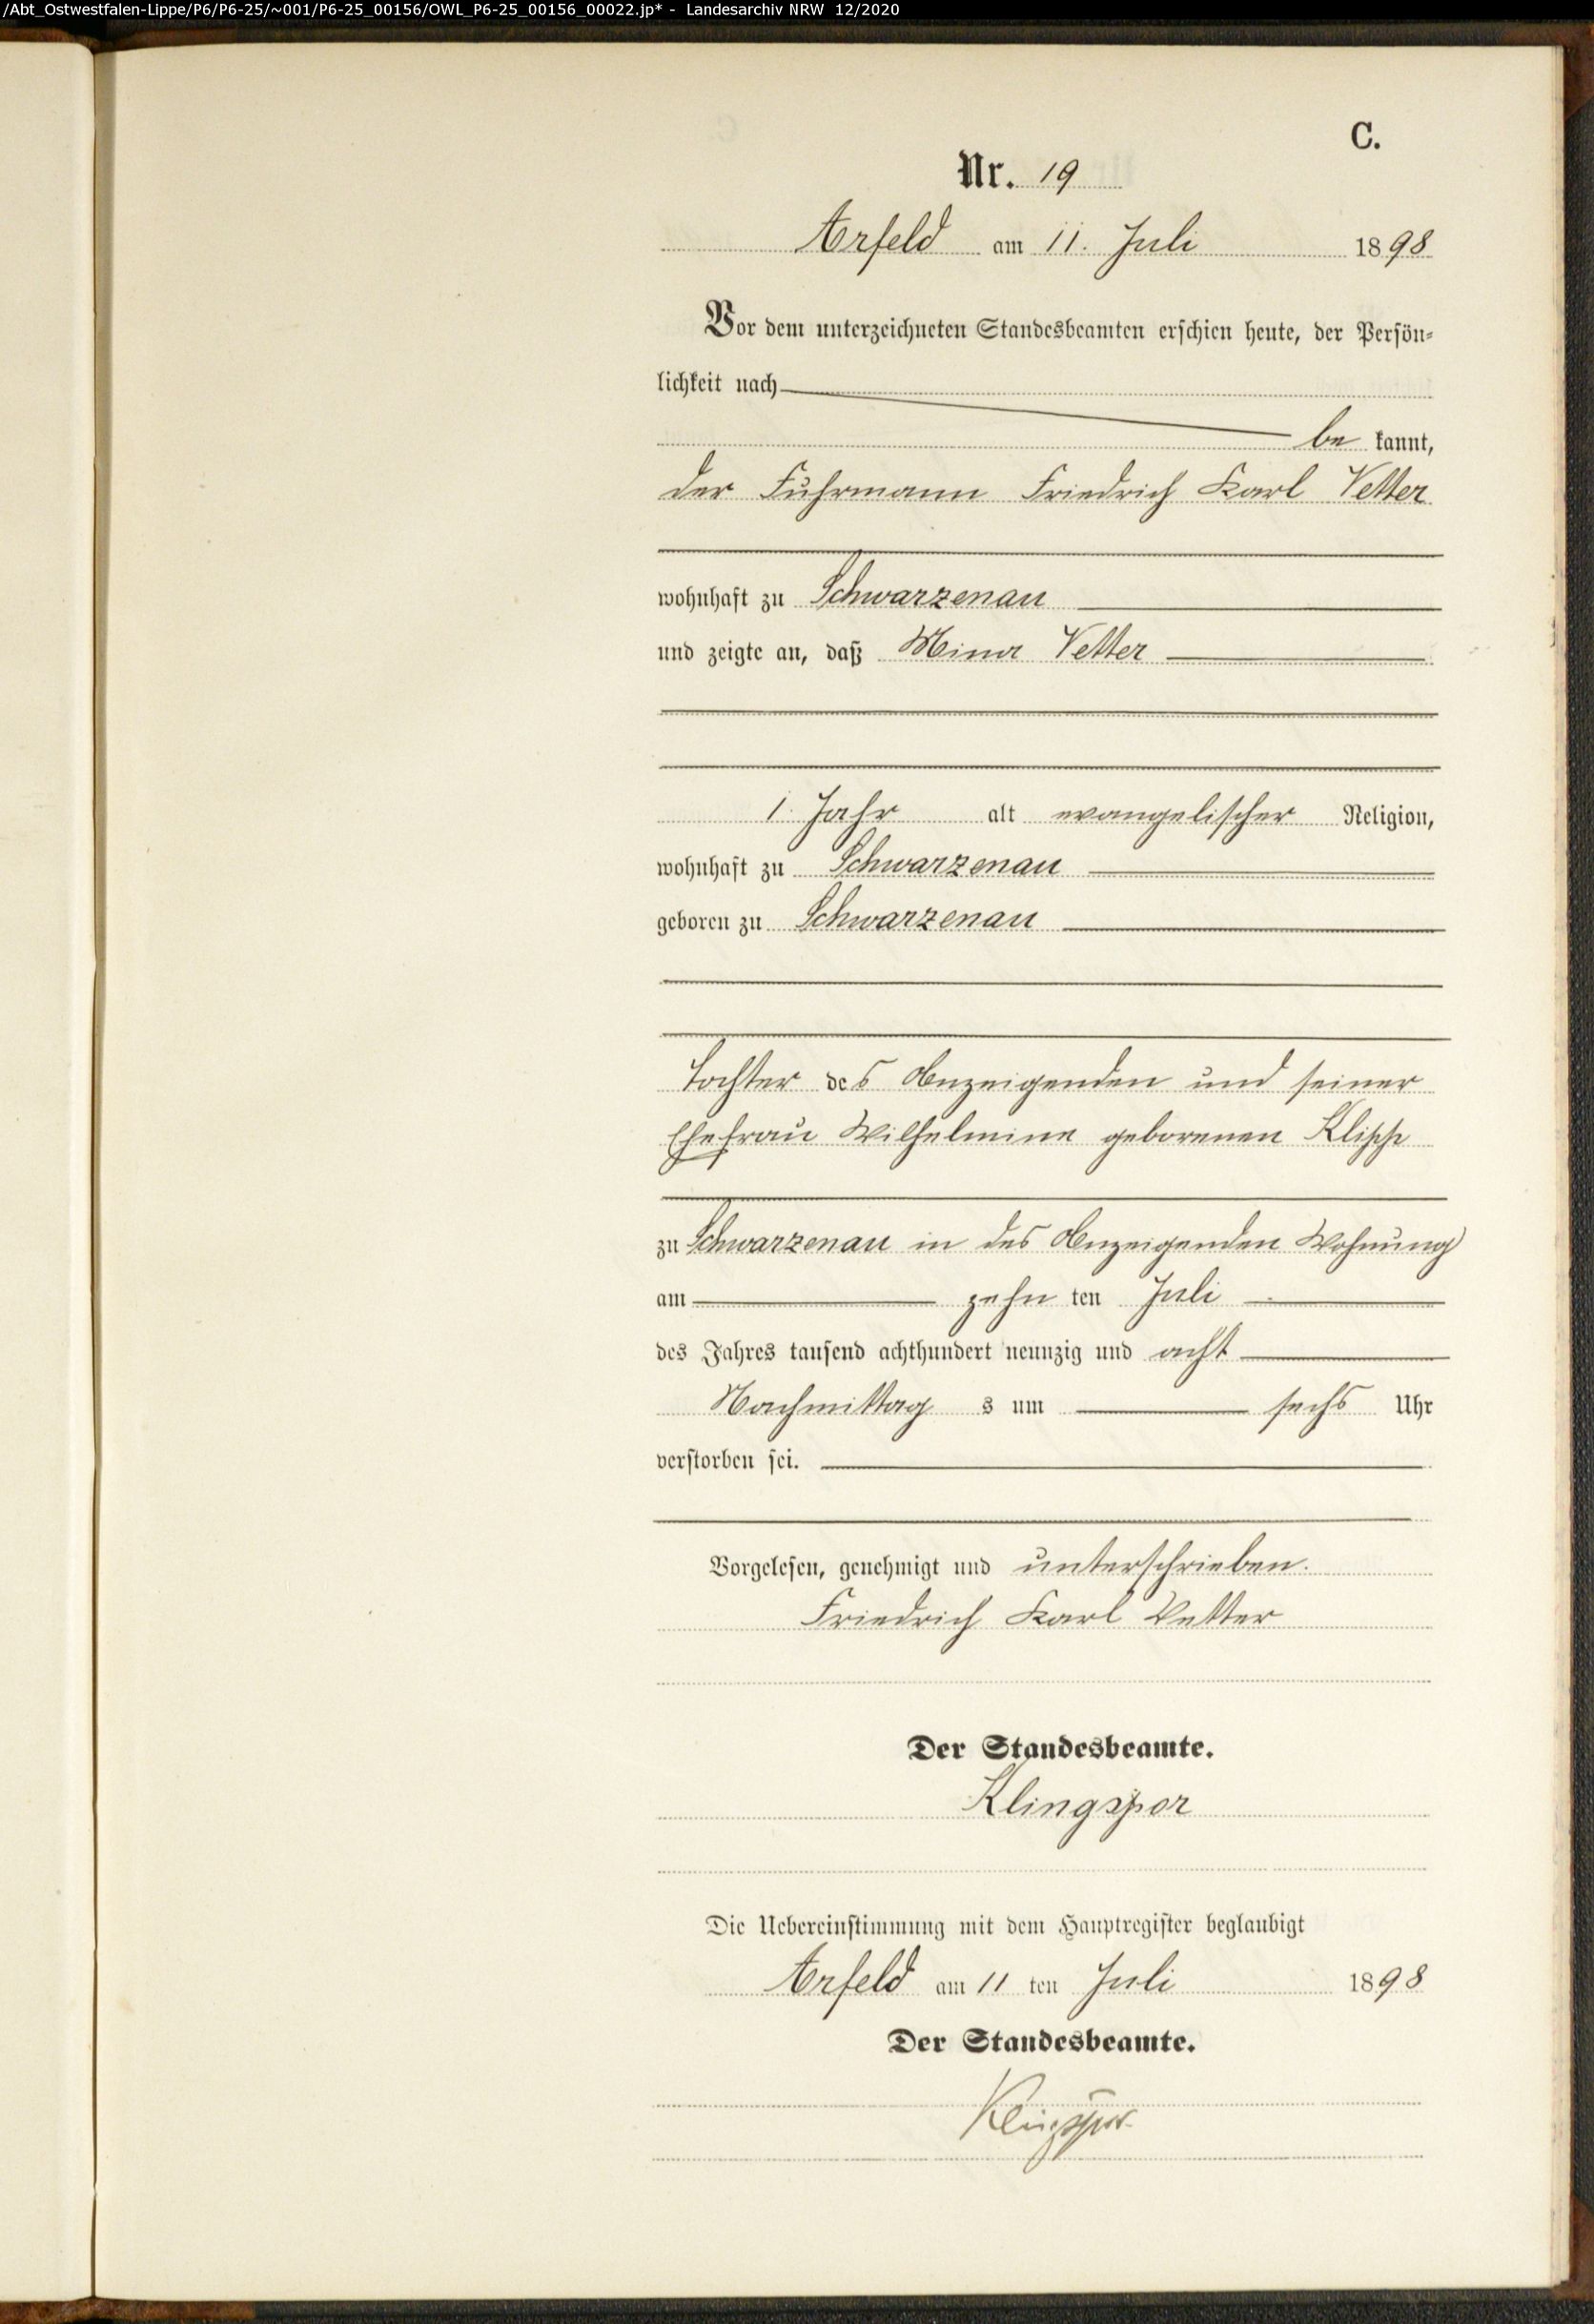 /Abt_Ostwestfalen-Lippe/P6/P6-25/~001/P6-25_00156/OWL_P6-25_00156_00022.jp* - Landesarchiv NRW 12/2020
C.
Nr. 19
Arfeld am 11. Juli 1898
Vor dem unterzeichneten Standesbeamten erschien heute, der Persön-
lichkeit nach
be kannt,
der Fuhrmann Friedrich Karl Vetter
wohnhaft zu Schwarzenau
und zeigte an, daß Mina Vetter
1 Jahr alt evangelischer Religion,
wohnhaft zu Schwarzenau
geboren zu Schwarzenau
Tochter des Anzeigenden und seiner
Ehefrau Wilhelmine geborenen
zu Schwarzenau in des Anzeigenden Wohnung
am zehn ten Juli
des Jahres tausend achthundert neunzig und acht
Nachmittag s um sechs Uhr
verstorben sei.
Vorgelesen, genehmigt und unterschrieben.
Friedrich Karl Vetter
Der Standesbeamte.
Klingspor
Die Uebereinstimmung mit dem Hauptregister beglaubigt
Arfeld am 11 ten Juli 1898
Der Standesbeamte.
Klingspor